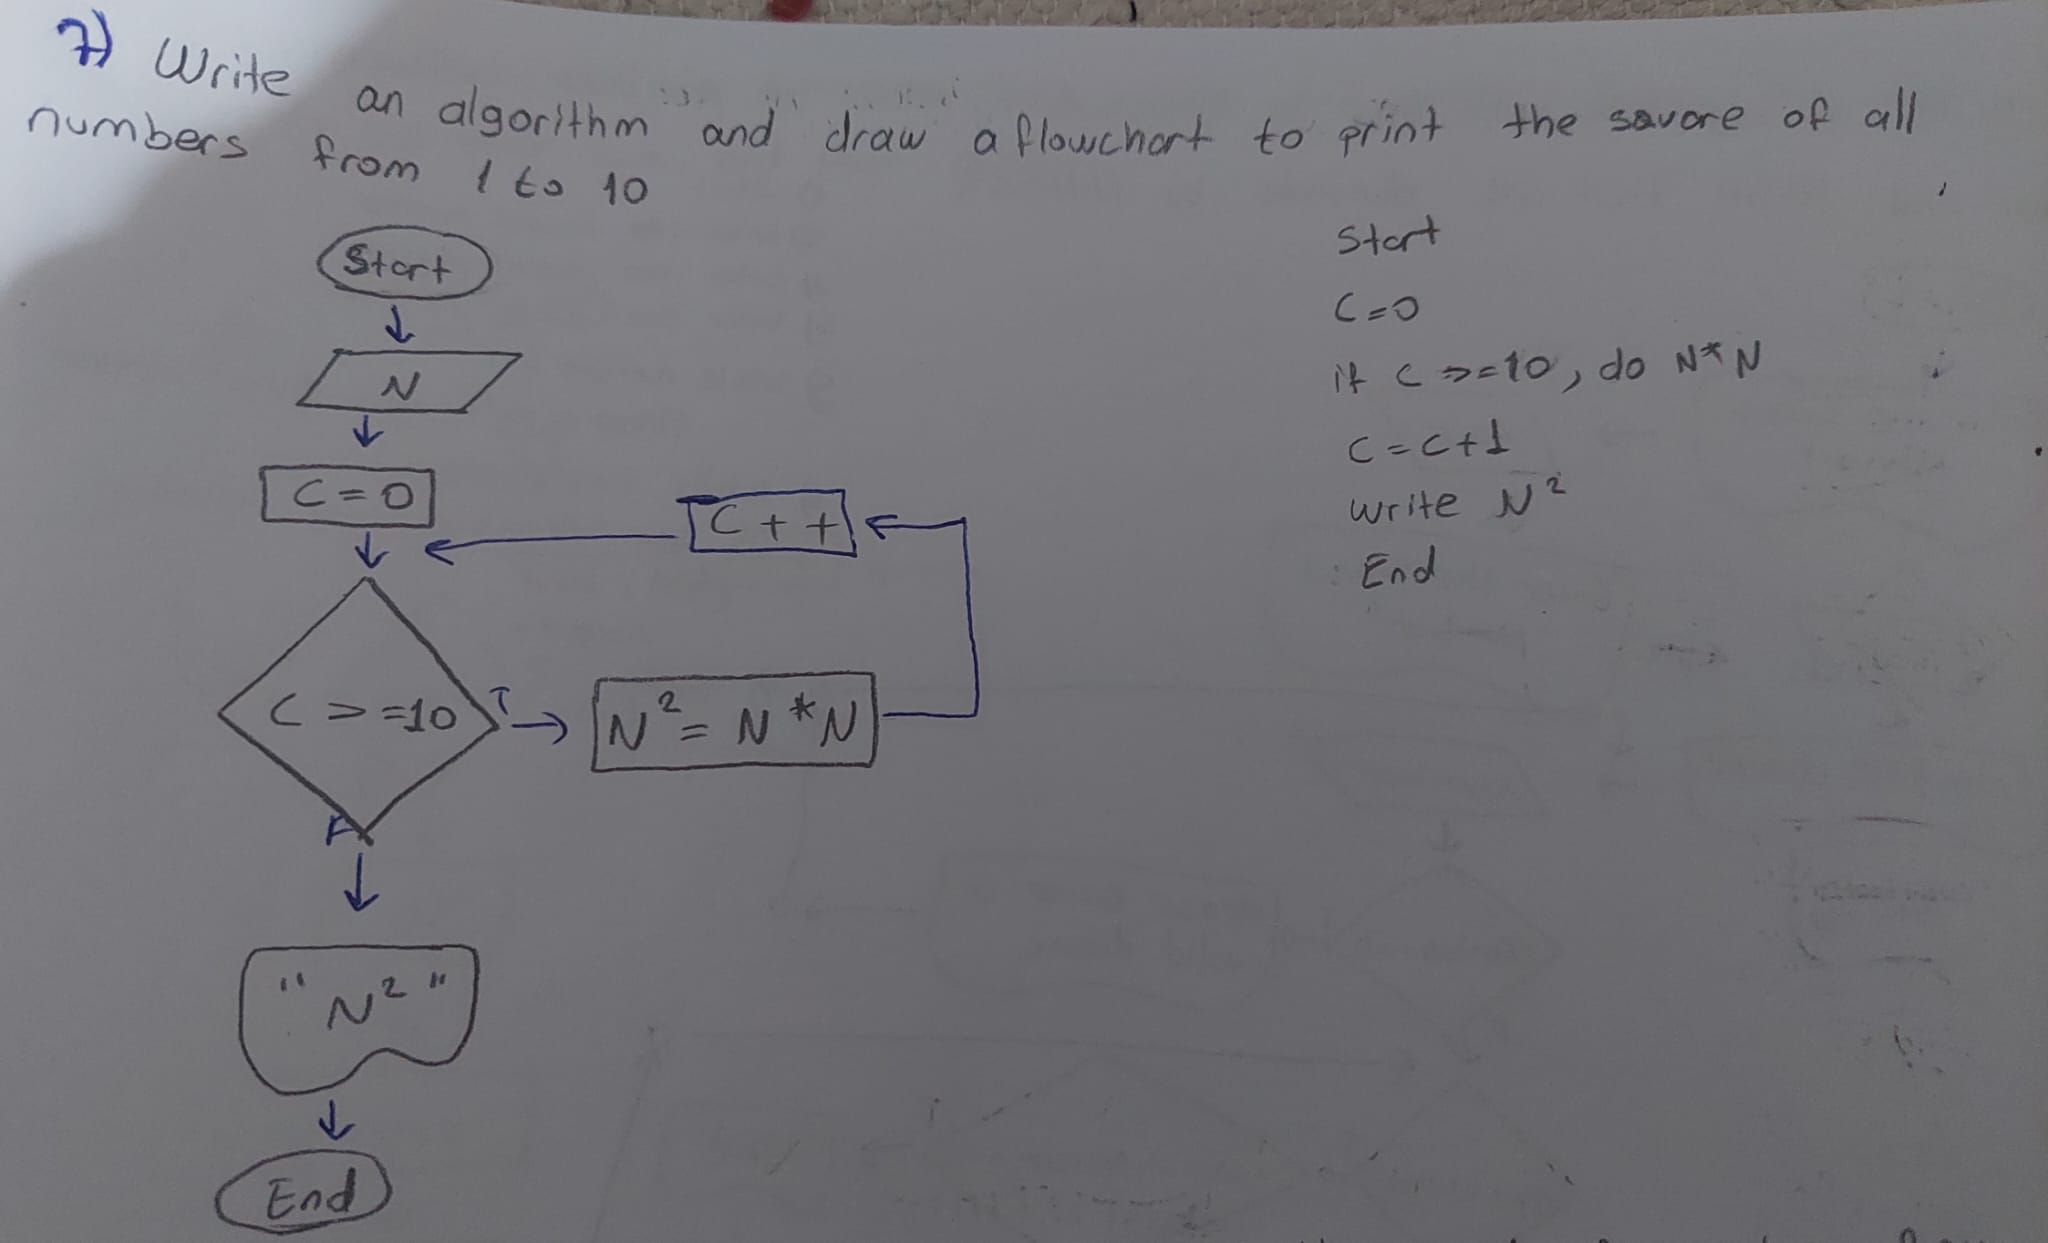 7) Write an algorithm and draw a flowchart to print the savare of all
numbers from 1 to 10
Start
N
C=0
C++
C>=10
T
N²= N*N
F
"N²"
End
Start
C=0
if C>=10, do N*N
C=C+1
write N²
End